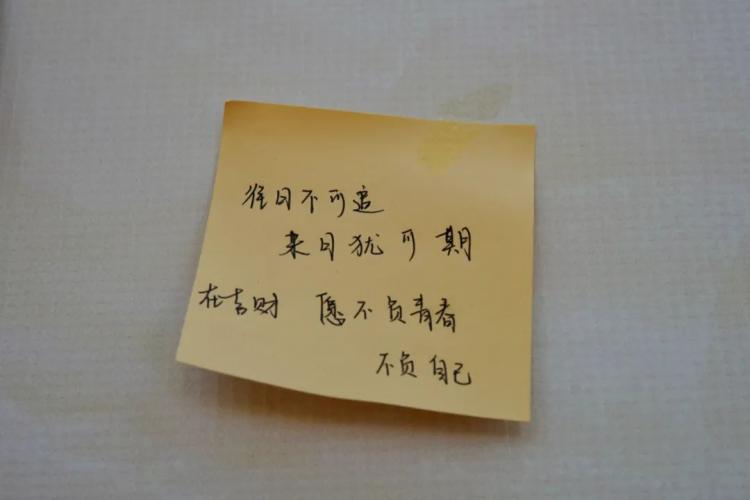 往日不可追
来日犹可期
在吉财 愿不负青春
不负自己